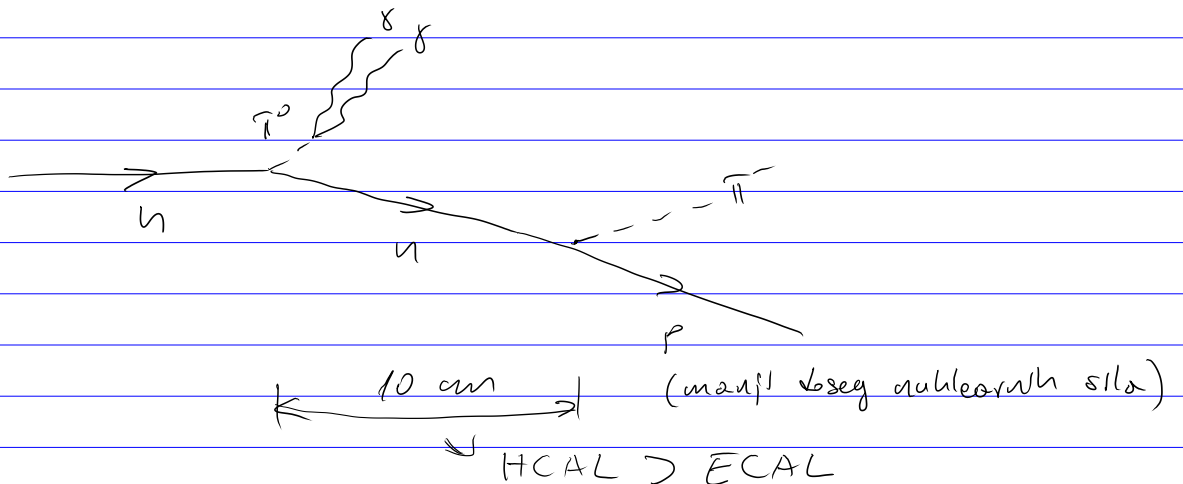 γ γ
π⁰
n
π⁻
n
p
10 cm
(manji doseg nuklearnih sila)
HCAL > ECAL